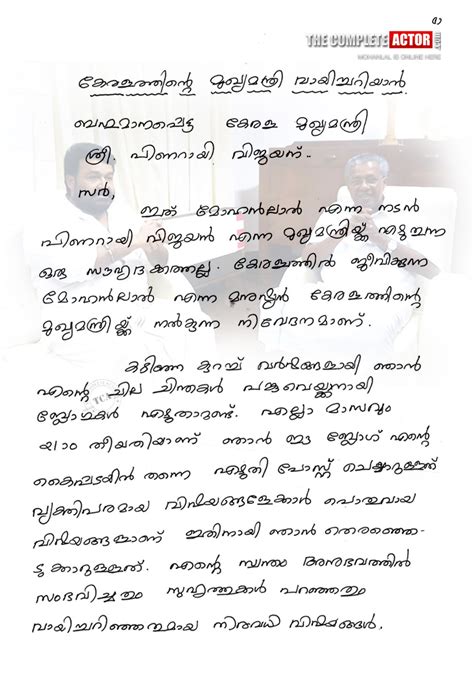 THE COMPLETE ACTOR
MOHANLAL IS ONLINE HERE
കേരളത്തിന്റെ മുഖ്യമന്ത്രി വായിച്ചറിയാൻ.
ബഹുമാനപ്പെട്ട കേരള മുഖ്യമന്ത്രി
ശ്രീ. പിണറായി വിജയന്..
സർ,
ഇത് മോഹൻലാൽ എന്ന നടൻ
പിണറായി വിജയൻ എന്ന മുഖ്യമന്ത്രിയ്ക്ക് എഴുതുന്ന
ഒരു സൗഹൃദക്കത്തല്ല. കേരളത്തിൽ ജീവിക്കുന്ന
മോഹൻലാൽ എന്ന മനുഷ്യൻ കേരളത്തിന്റെ
മുഖ്യമന്ത്രിയ്ക്ക് നൽകുന്ന നിവേദനമാണ്.
കഴിഞ്ഞ കുറച്ച് വർഷങ്ങളായി ഞാൻ
എന്റെ ചില ചിന്തകൾ പങ്കുവെയ്ക്കാനായി
ബ്ലോഗുകൾ എഴുതാറുണ്ട്. എല്ലാ മാസവും
21ാം തീയതിയാണ് ഞാൻ ഈ ബ്ലോഗ് എന്റെ
കൈപ്പടയിൻ തന്നെ എഴുതി പോസ്റ്റ് ചെയ്യാറുള്ളത്
വ്യക്തിപരമായ വിഷയങ്ങളേക്കാൾ പൊതുവായ
വിഷയങ്ങളാണ് ഇതിനായി ഞാൻ തെരഞ്ഞെ-
ടുക്കാറുള്ളത്. എന്റെ സ്വന്തം അനുഭവത്തിൽ
സംഭവിച്ചതും സുഹൃത്തുക്കൾ പറഞ്ഞതും
വായിച്ചറിഞ്ഞതുമായ നിരവധി വിഷയങ്ങൾ.